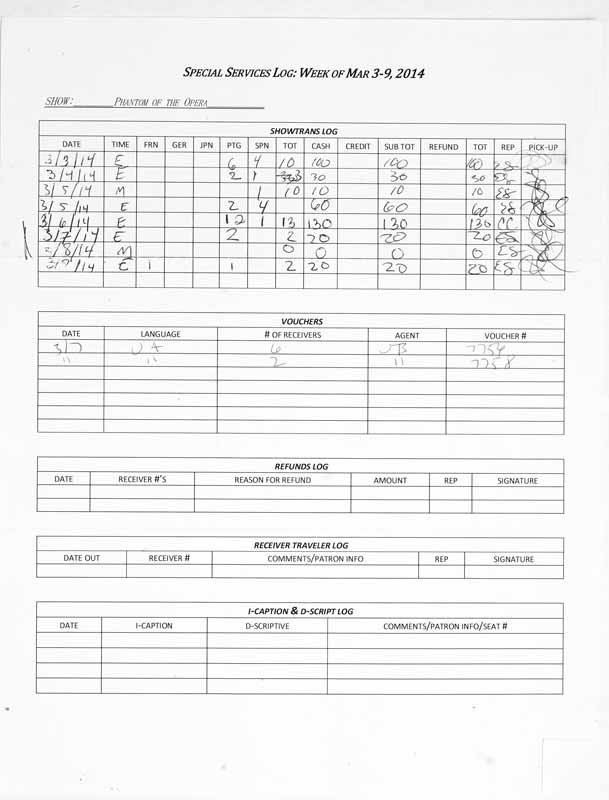 SPECIAL SERVICES LOG: WEEK OF MAR 3-9, 2014
SHOW: PHANTOM OF THE OPERA
SHOWTRANS LOG
DATE TIME FRN GER JPN PTG SPN TOT CASH CREDIT SUB TOT REFUND TOT REP PICK-UP
3/3/14 E 6 4 10 100 100 100 ES
3/4/14 E 2 1 3 30 30 30 ES
3/5/14 M 1 10 10 10 ES
3/5/14 E 2 4 60 60 60 ES
3/6/14 E 12 1 13 130 130 130 CC
3/7/14 E 2 2 20 20 20 ES
3/8/14 M 0 0 0 0 ES
14 E 1 1 2 20 20 20 ES
VOUCHERS
DATE LANGUAGE # OF RECEIVERS AGENT VOUCHER #
3/7 6
" " 2 " 7758
REFUNDS LOG
DATE RECEIVER #'S REASON FOR REFUND AMOUNT REP SIGNATURE
RECEIVER TRAVELER LOG
DATE OUT RECEIVER # COMMENTS/PATRON INFO REP SIGNATURE
I-CAPTION & D-SCRIPT LOG
DATE I-CAPTION D-SCRIPTIVE COMMENTS/PATRON INFO/SEAT #